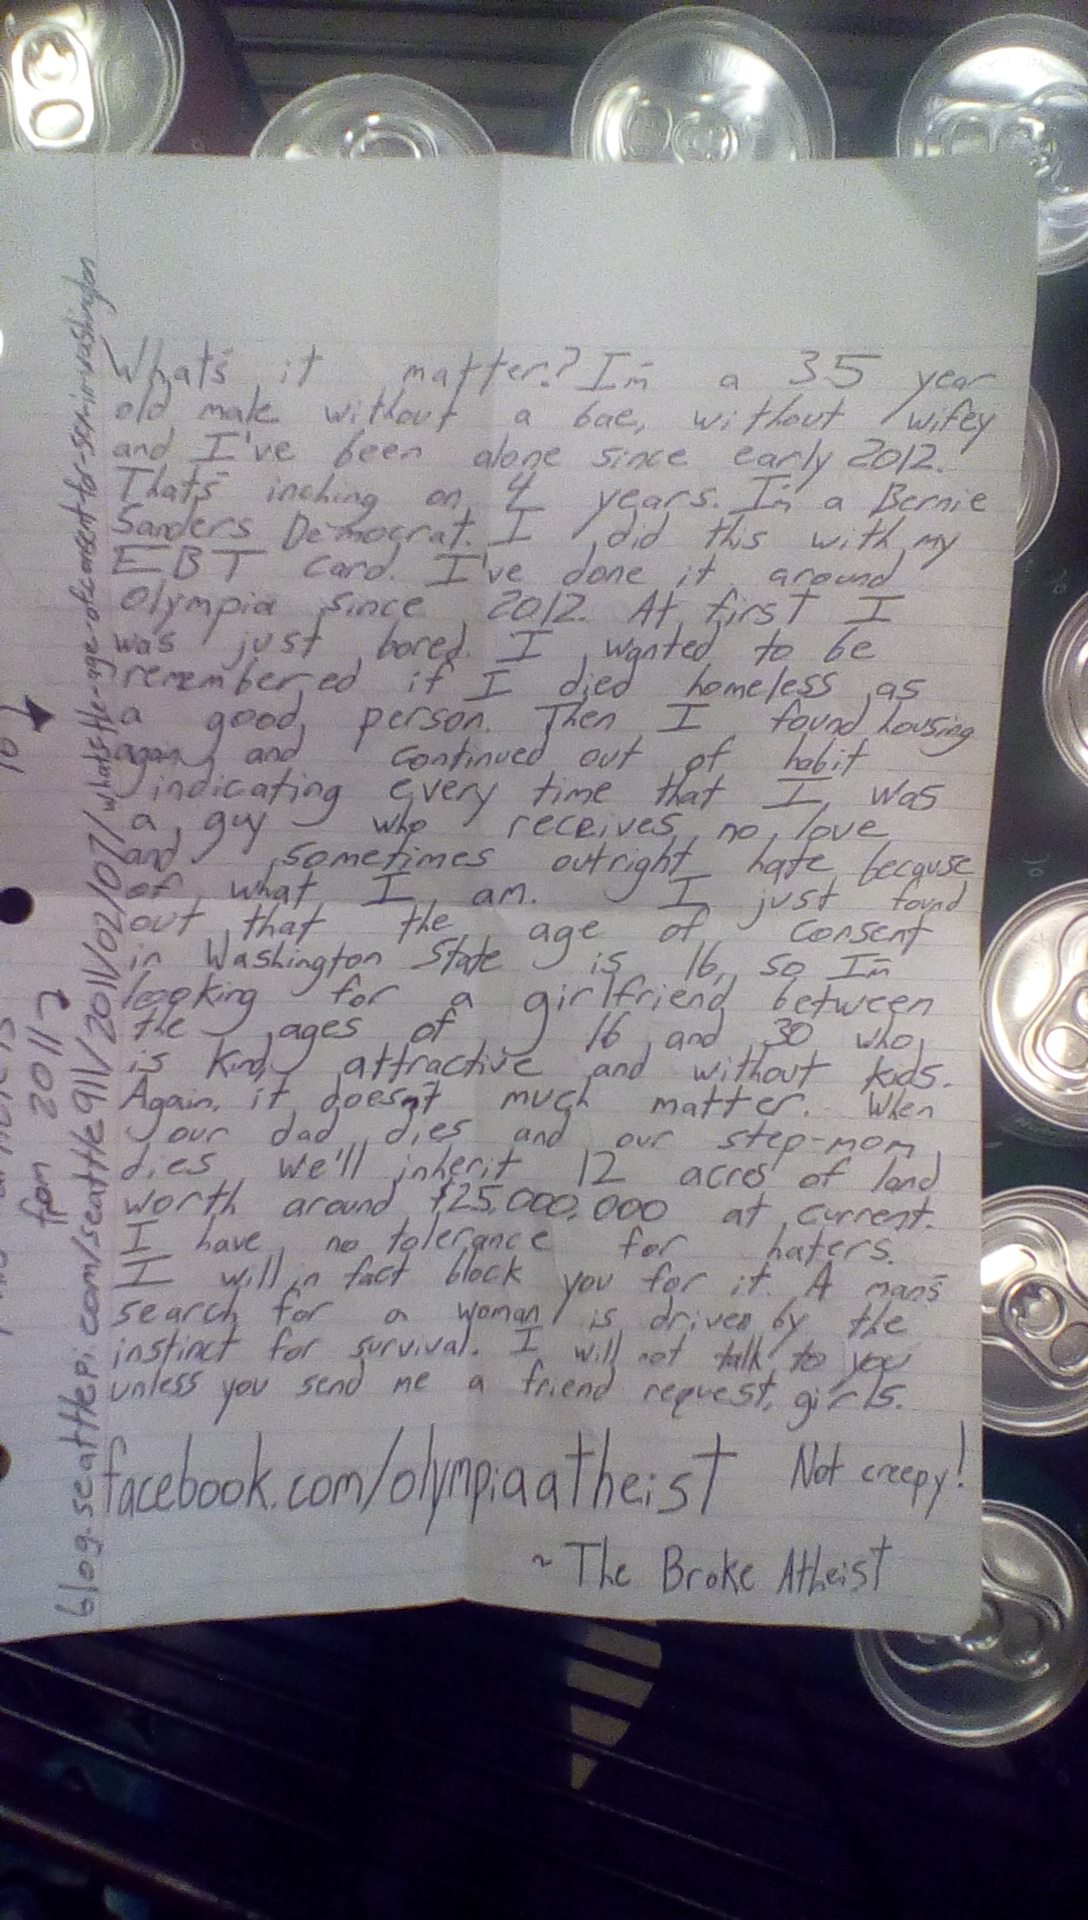 What's it matter? I'm a 35 year
old male without a bae, without wifey
and I've been alone since early 2012.
That's inching on 4 years. I'm a Bernie
Sanders Democrat. I did this with my
EBT card. I've done it around
Olympia since 2012. At first I
was just bored. I wanted to be
remembered if I died homeless as
a good person. Then I found housing
again and continued out of habit
indicating every time that I was
a guy who receives no love
and sometimes outright hate because
of what I am. I just found
out that the age of consent
in Washington State is 16, so I'm
looking for a girlfriend between
the ages of 16 and 30 who
is kind, attractive and without kids.
Again, it doesn't much matter. When
our dad dies and our step-mom
dies we'll inherit 12 acres of land
worth around $25,000,000 at current.
I have no tolerance for haters.
I will in fact block you for it. A man's
search for a woman is driven by the
instinct for survival. I will not talk to you
unless you send me a friend request, girls.
facebook.com/olympiaatheist Not creepy!
~ The Broke Atheist
from 2011
blog.seattlepi.com/seattle911/2011/02/07/whats-the-age-of-consent-for-sex-in-washington